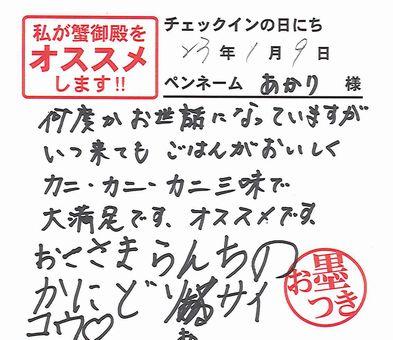 私が蟹御殿を
オススメ
します!!
チェックインの日にち
23年1月9日
ペンネーム あかり 様
何度かお世話になっていますが
いつ来てもごはんがおいしく
カニ・カニ・カニ三味で
大満足です、オススメです。
おこさまらんちの
かにどり サイ
コウ♡
お墨
つき